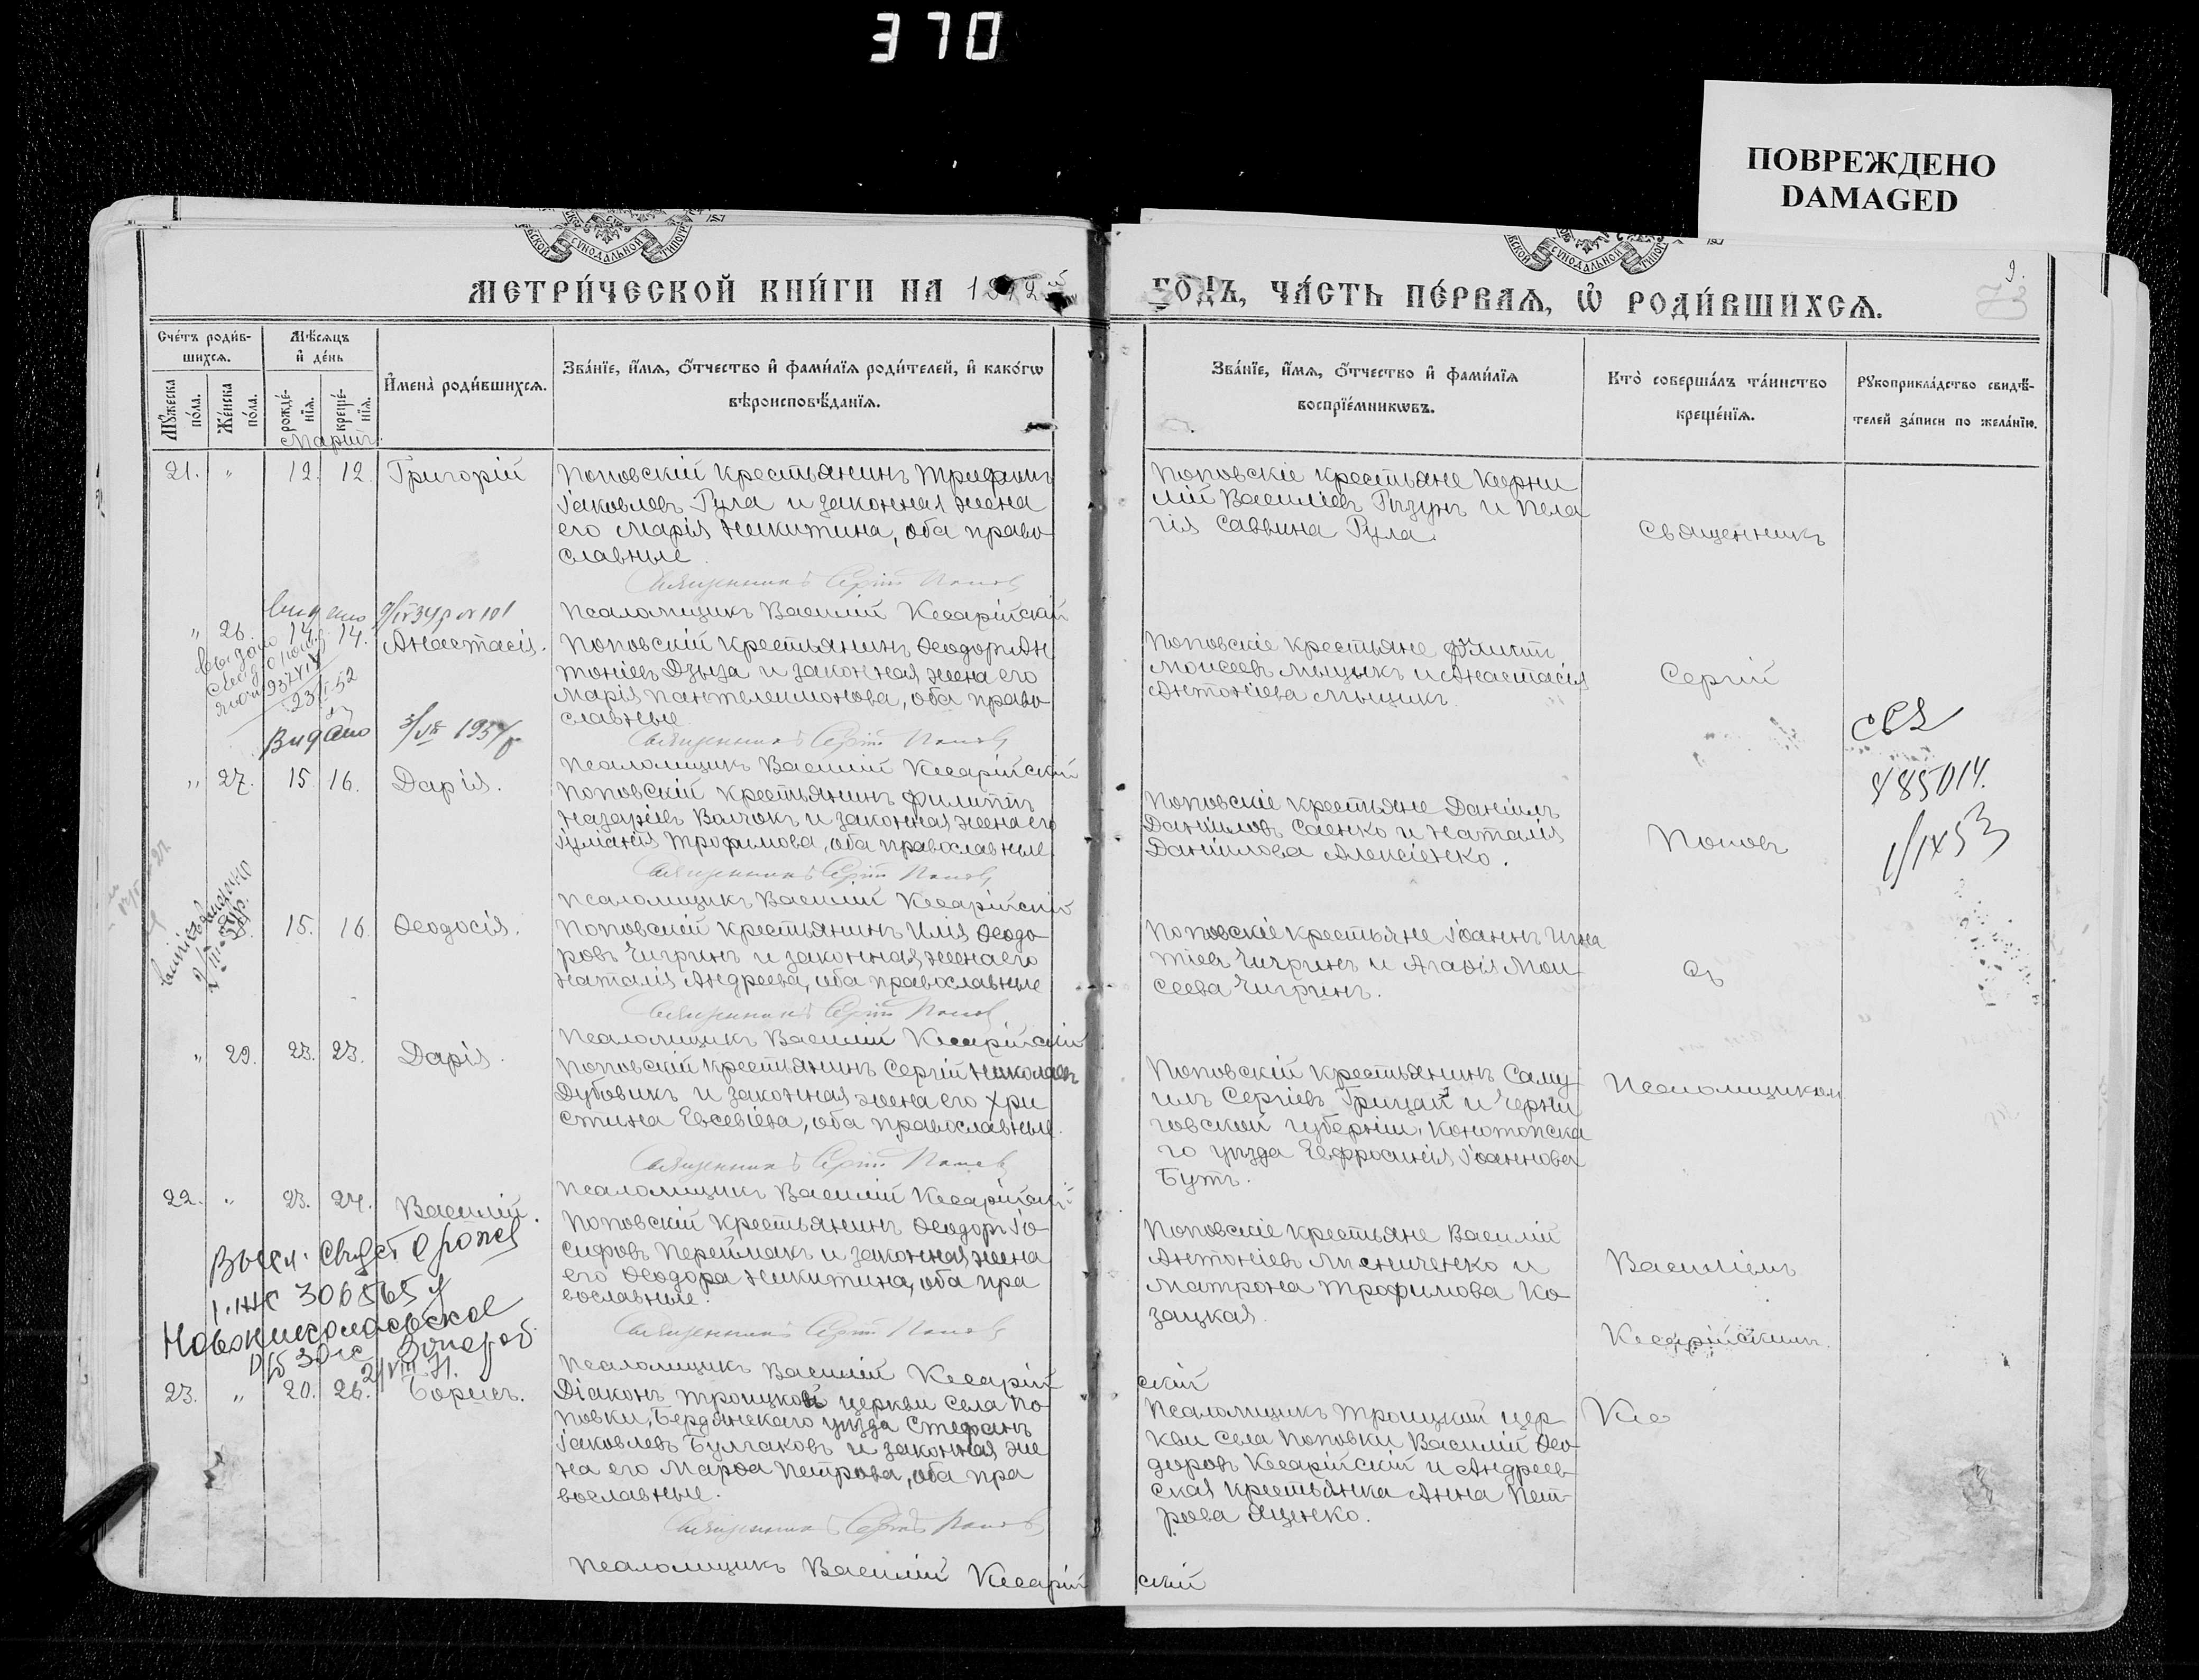 370
ПОВРЕЖДЕНО
DAMAGED
МЕТРИ́ЧЕСКОЙ КНИ́ГИ НА 1912й ГОДЪ, ЧА́СТЬ ПЕ́РВАѦ, Ѡ҆ РОДИ́ВШИХСѦ.
9.
73
Сче́тъ роди́в-
шихсѧ.
Мѣ́сѧцъ
и҆ де́нь
Мꙋ́жеска по́ла.
Же́нска по́ла.
рожде́-
нїѧ.
креще́-
нїѧ.
И҆мена̀ роди́вшихсѧ.
Зва́нїе, и҆́мѧ, ѻ҆́тчество и҆ фами́лїѧ роди́телей, и҆ како́гѡ
вѣроисповѣ́данїѧ.
Зва́нїе, и҆́мѧ, ѻ҆́тчество и҆ фами́лїѧ
воспрїе́мникѡвъ.
Кто̀ соверша́лъ та́инство
креще́нїѧ.
Рꙋкоприкла́дство свидѣ́-
телей за́писи по жела́нїю.
Мартъ
21. " 12. 12. Григорій
Поповскій крестьянинъ Трифонъ
Іаковлевъ Рула и законная жена
его Марія Никитина, оба право-
славные.
Священникъ Сергій Попов
Псаломщикъ Василій Кесарійскій
Поповскіе крестьяне Корни
лій Василіевъ Ризунъ и Пела
гія Саввина Рула.
Священникъ
" 26. 14. 14. Анастасія.
Поповскій крестьянинъ Ѳеодоръ Ан
тоніевъ Дзыза и законная жена его
Марія Пантелеимонова, оба право-
славные.
Священникъ Сергій Попов
Псаломщикъ Василій Кесарійскій
Поповскіе крестьяне Филиппъ
Моисеевъ Мыцыкъ и Анастасія
Антоніева Мыцикъ.
Сергій
Видано
1937
" 27. 15. 16. Дарія.
Поповскій крестьянинъ Филиппъ
Назаріевъ Волчокъ и законная жена его
Іуліанія Трофимова, оба православные.
Священникъ Сергій Попов
Псаломщикъ Василій Кесарійскій
Поповскіе крестьяне Даніилъ
Даніиловъ Саенко и Наталія
Даніилова Алексіенко.
Поповъ
485014.
1/IX 53
15. 16. Ѳеодосія.
Поповскій крестьянинъ Илія Ѳеодо-
ровъ Чигринъ и законная жена его
Наталія Андреева, оба православные
Священникъ Сергій Попов
Псаломщикъ Василій Кесарійскій
Поповскіе крестьяне Іоаннъ Игна
тіевъ Чигринъ и Агафія Мои
сеева Чигринъ.
съ
" 29. 23. 23. Дарія.
Поповскій крестьянинъ Сергій Николаевъ
Дубовикъ и законная жена его Хри
стина Евсевіева, оба православные.
Священникъ Сергій Попов
Псаломщикъ Василій Кесарійскій
Поповскій крестьянинъ Саму
илъ Сергіевъ Грицай и Черни
говской губерніи, Конотопска
го уезда Евфросинія Іоаннова
Бутъ.
Псаломщикомъ
22. " 23. 24. Василій.
Поповскій крестьянинъ Ѳеодоръ Іо-
сифовъ Перетмакъ и законная жена
его Ѳеодора Никитина, оба пра
вославные.
Священникъ Сергій Попов
Псаломщикъ Василій Кесарійскій
Поповскіе крестьяне Василій
Антоніевъ Мисниченко и
Матрона Трофимова Ко-
зацкая.
Василіемъ
Кесарійскимъ.
306565
23. " 20. 26. Борисъ.
Діаконъ Троицкой церкви села По-
повки, Бердянскаго уезда Стефанъ
Іаковлевъ Булгаковъ и законная же
на его Марфа Петрова, оба пра
вославные.
Священникъ Сергій Попов
Псаломщикъ Василій Кесарійскій
Псаломщикъ Троицкой цер-
кви села Поповки Василій Ѳео-
доровъ Кесарійскій и Андреев-
ская крестьянка Анна Пет-
рова Яценко.